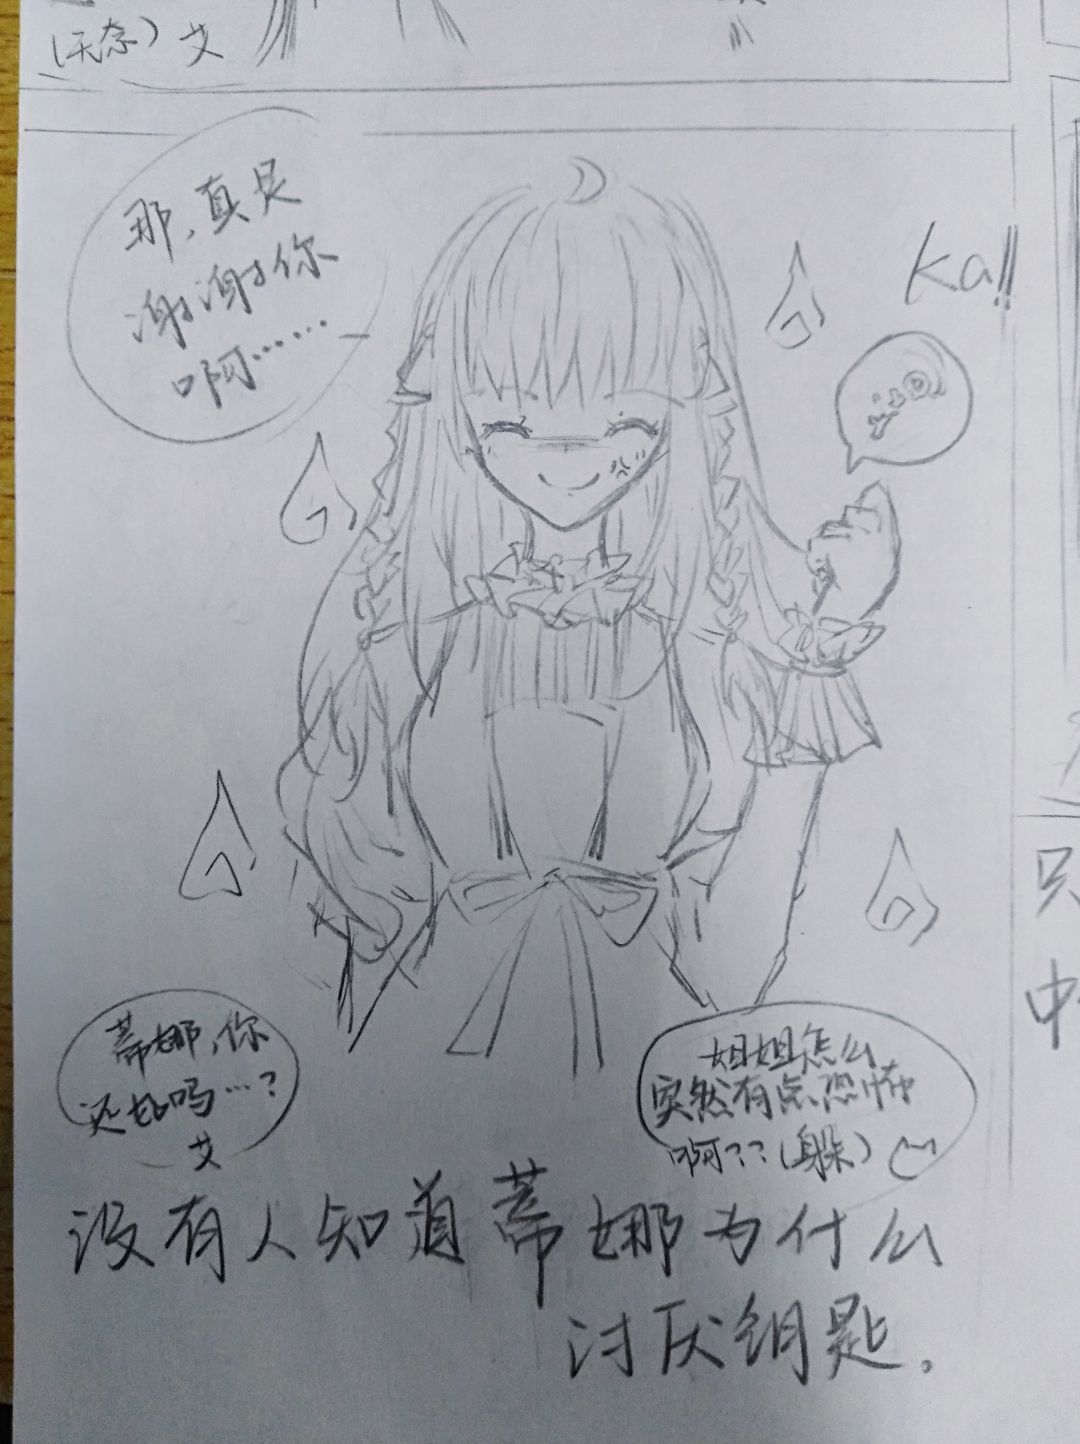 （无奈）艾
那，真是
谢谢你
啊……
Ka!!
蒂娜，你
还好吗…？
艾
姐姐怎么
突然有点恐怖
啊？？（躲）
没有人知道蒂娜为什么
讨厌钥匙。
只
中